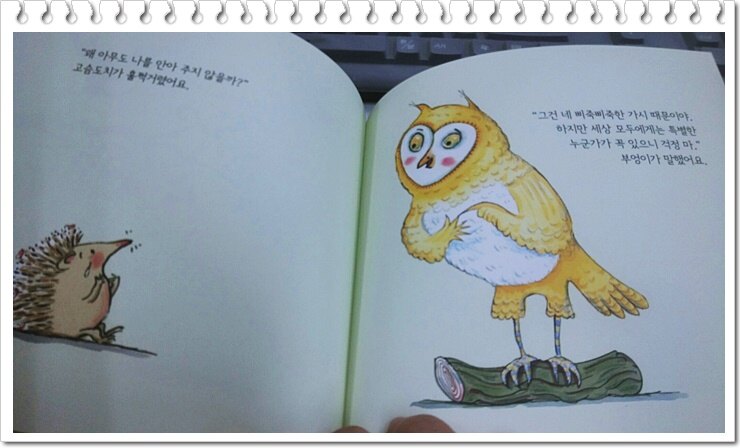 "왜 아무도 나를 안아 주지 않을까?"
고슴도치가 훌쩍거렸어요.
"그건 네 삐죽삐죽한 가시 때문이야.
하지만 세상 모두에게는 특별한
누군가가 꼭 있으니 걱정 마."
부엉이가 말했어요.